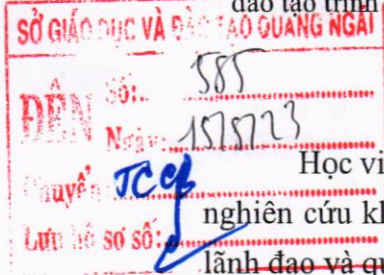 đào tạo trình
SỞ GIÁO DỤC VÀ ĐÀO TẠO QUẢNG NGÃI
ĐẾN
Số: 585
Ngày: 15/5/23
Chuyển TCCB
Học vi
Lưu hồ sơ số:
nghiên cứu kh
lãnh đạo và qu